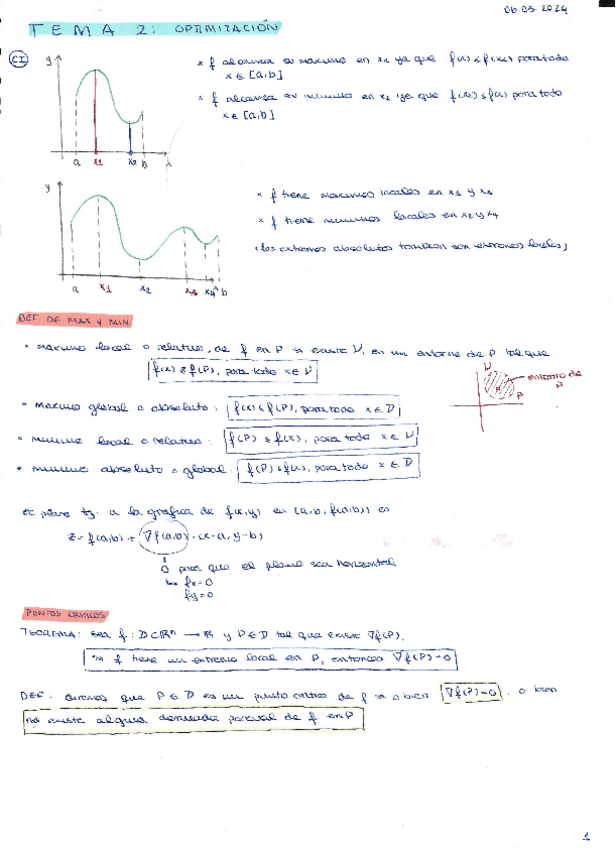 06.03.2024
TEMA 2: OPTIMIZACIÓN
CI
y
x f alcanza su maximo en x1 ya que f(x) ≤ f(x1) para todo
x ∈ [a,b]
x f alcanza su minimo en x2 ya que f(x2) ≤ f(x) para todo
x ∈ [a,b]
a x1 x2 b x
y
x f tiene maximos locales en x1 y x3
x f tiene minimos locales en x2 y x4
(los extremos absolutos tambien son extremos locales)
a x1 x2 x3 x4 b
DEF. DE MAX Y MIN
• maximo local o relativo, de f en P si existe U, en un entorno de P tal que
f(x) ≤ f(P), para todo x ∈ U
U
entorno de
P
P
• maximo global o absoluto: f(x) ≤ f(P), para todo x ∈ D
• minimo local o relativo: f(P) ≤ f(x), para todo x ∈ U
• minimo absoluto o global: f(P) ≤ f(x), para todo x ∈ D
el plano tg. a la grafica de f(x,y) en (a,b, f(a,b)) es
z = f(a,b) + ∇f(a,b)·(x-a, y-b)
0 para que el plano sea horizontal
fx=0
fy=0
PUNTOS CRITICOS
TEOREMA: sea f: D⊂Rⁿ → R y P∈D tal que existe ∇f(P).
si f tiene un extremo local en P, entonces ∇f(P)=0
DEF: diremos que P∈D es un punto critico de f si o bien ∇f(P)=0, o bien
no existe alguna derivada parcial de f en P
1